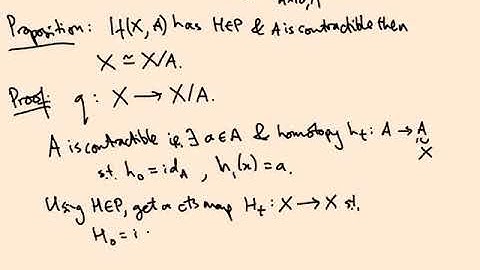 Proposition: If (X, A) has HEP & A is contractible then
X ≃ X/A.
Proof: q: X → X/A.
A is contractible i.e. ∃ a ∈ A & homotopy hₜ: A → A
∩
X
s.t. h₀ = id_A , h₁(x) = a.
Using HEP, get a cts map Hₜ: X → X s.t.
H₀ = i